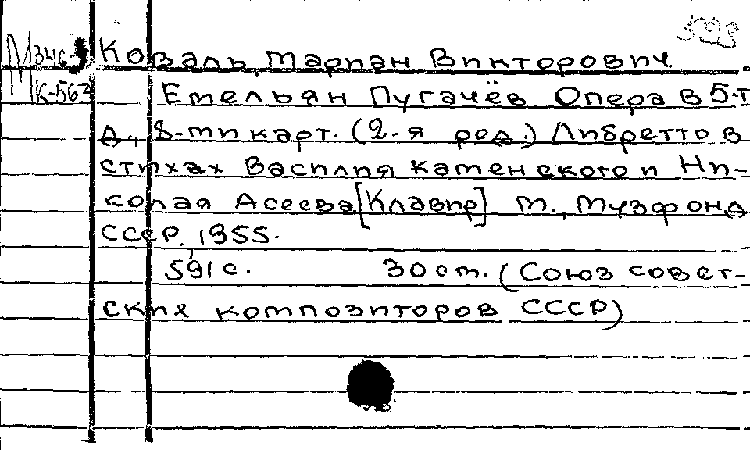 М 346-3
К-562
Коваль, Мариан Викторович.
Емельян Пугачёв Опера в 5-т
д., 8-ти карт. (2-я ред.) Либретто в
стихах Василия Каменского и Ни-
колая Асеева [Клавир] М., Музфонд
СССР, 1955.
591 с. 30 см. (Союз совет-
ских композиторов СССР)